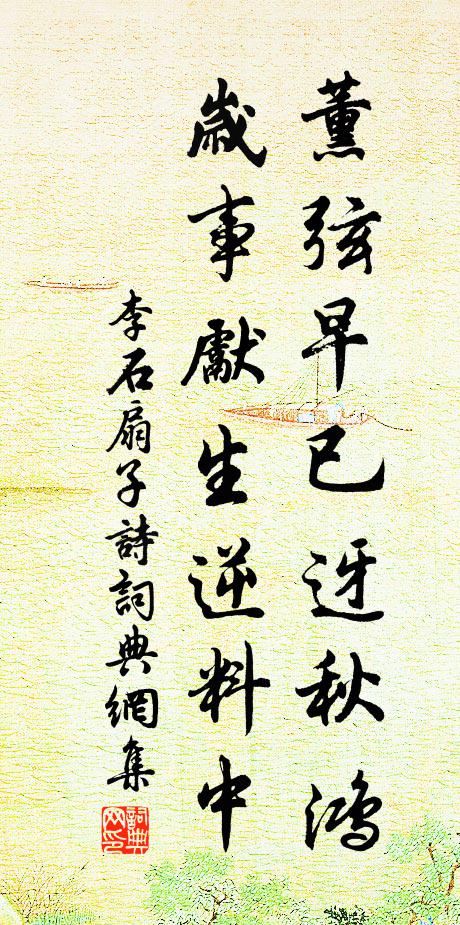 薰弦早已迓秋鴻
歲事獻生逆料中
李石扇子詩詞典網集
詞典網印